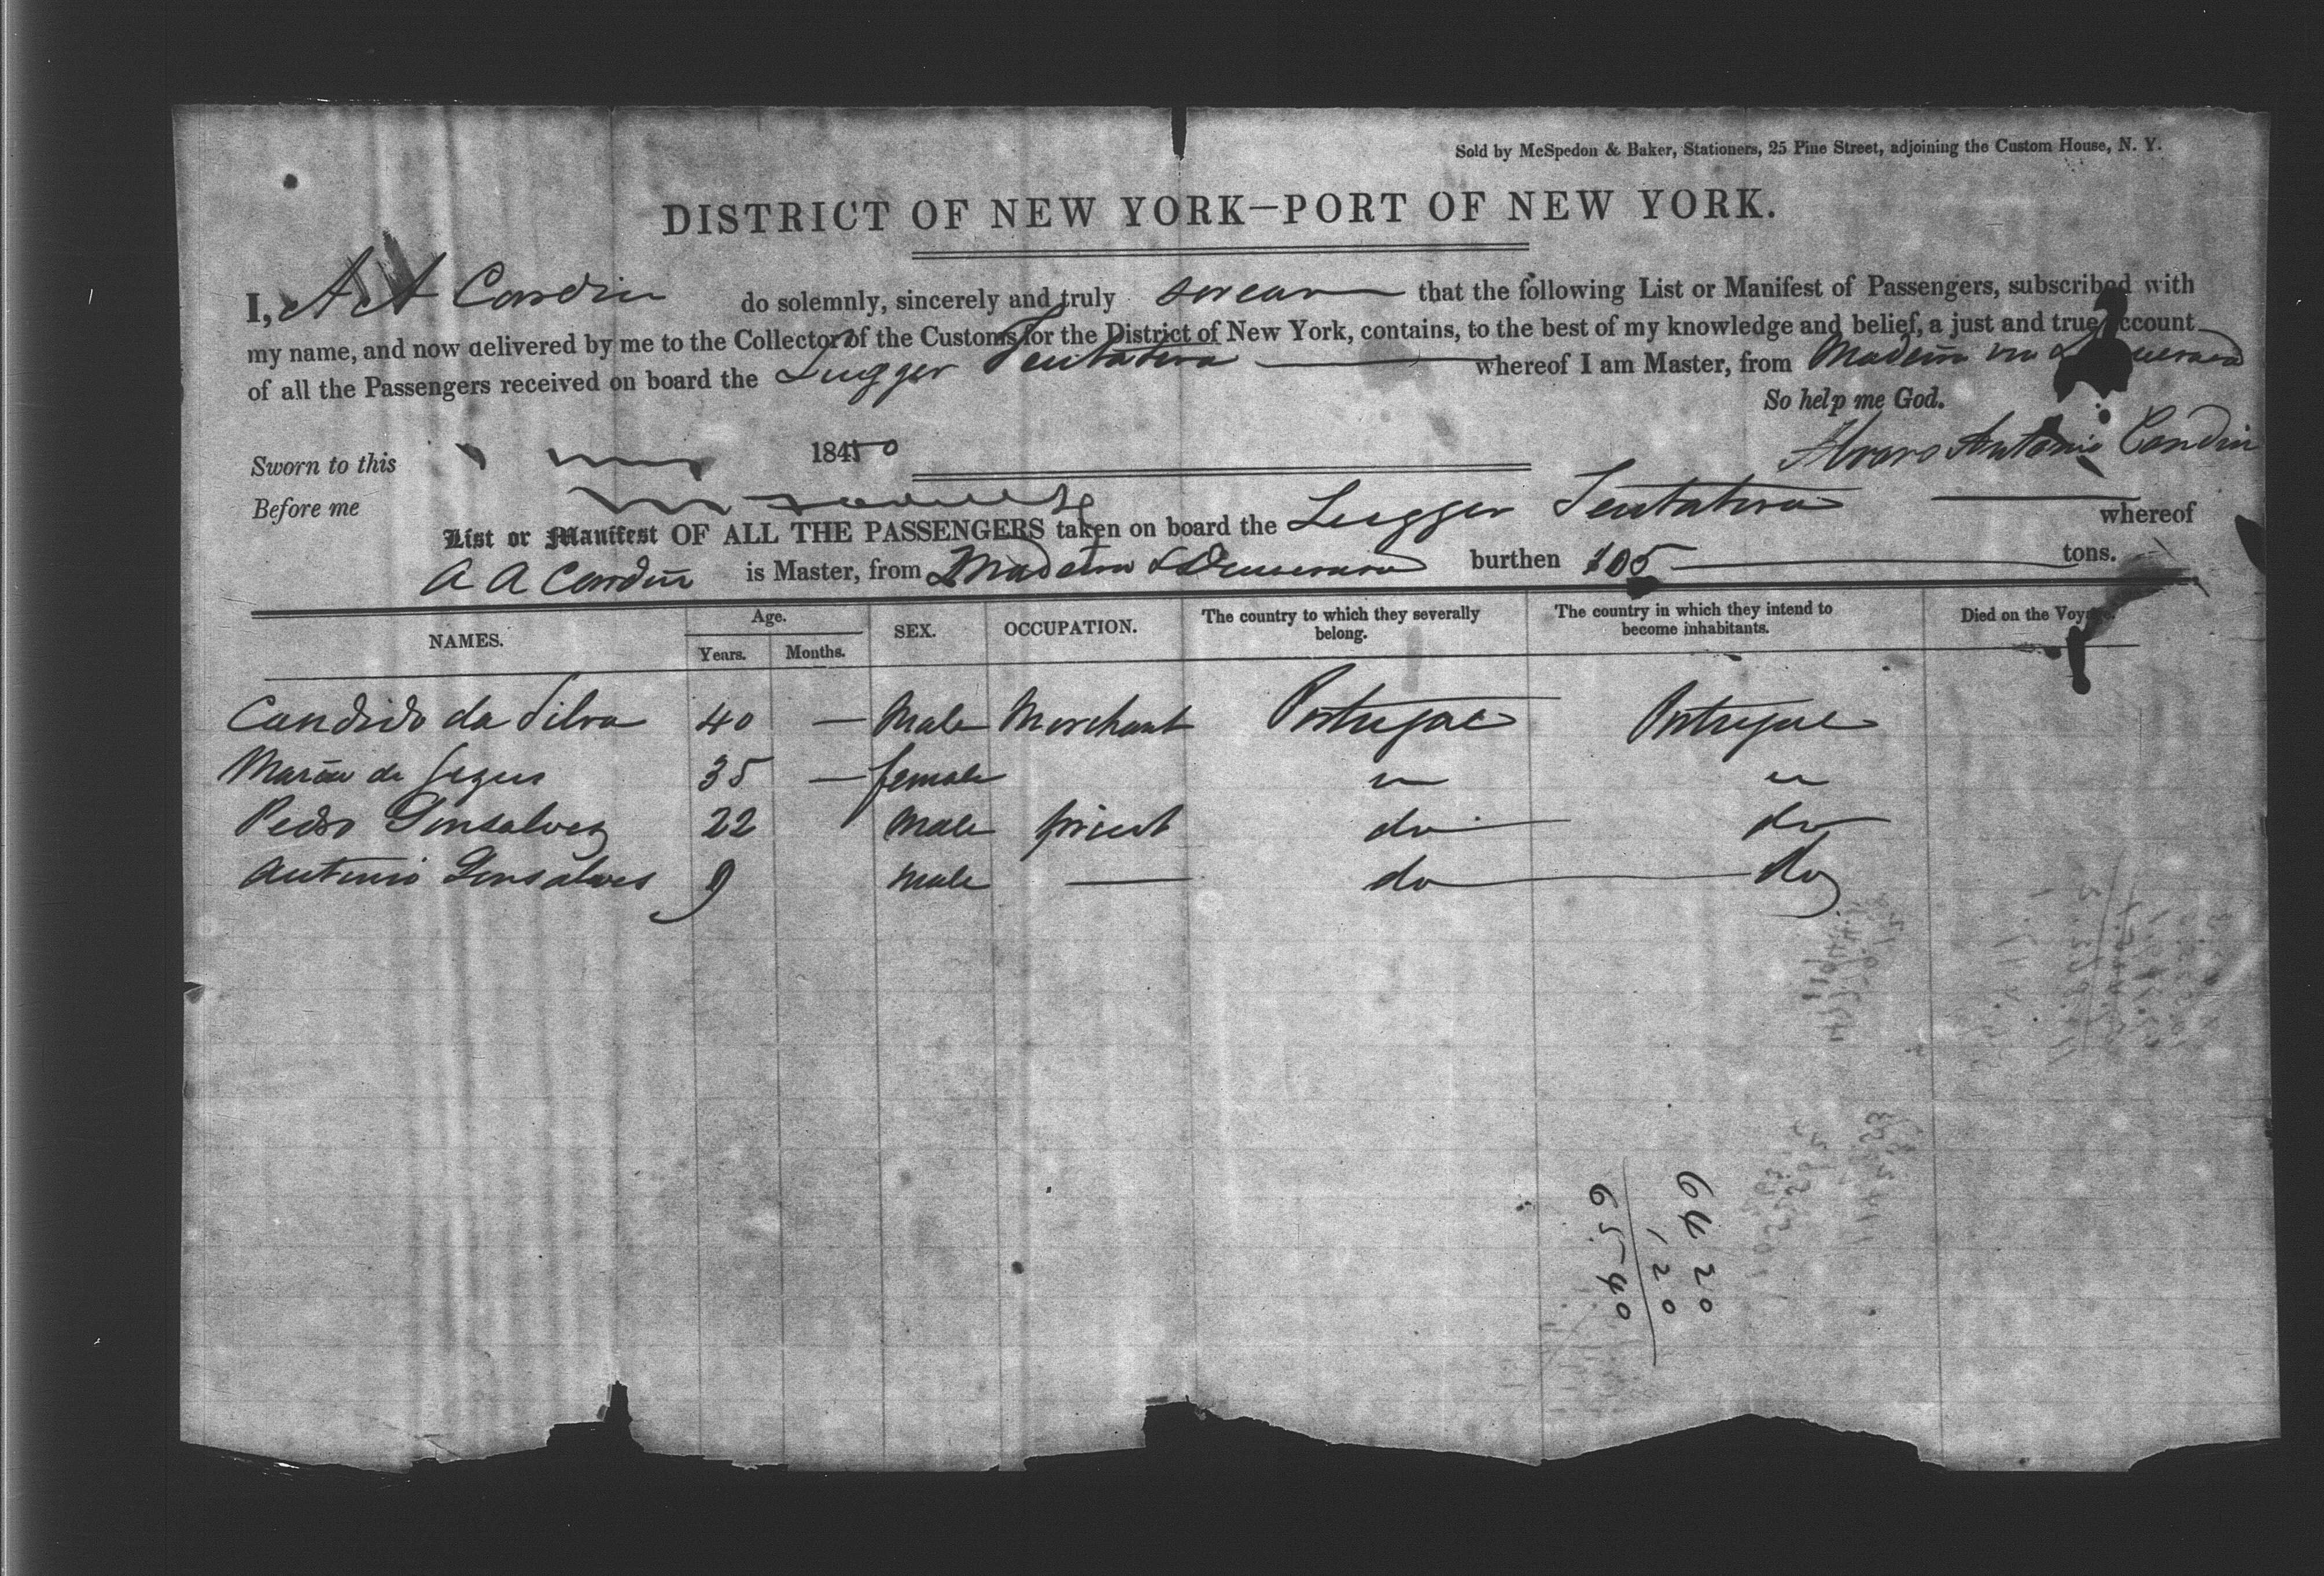 Sold by McSpedon & Baker, Stationers, 25 Pine Street, adjoining the Custom House, N. Y.
DISTRICT OF NEW YORK—PORT OF NEW YORK.
I, A A Cardin do solemnly, sincerely and truly swear that the following List or Manifest of Passengers, subscribed with
my name, and now delivered by me to the Collector of the Customs for the District of New York, contains, to the best of my knowledge and belief, a just and true account
of all the Passengers received on board the Lugger Tentativa whereof I am Master, from Madeira
So help me God.
Sworn to this 1850 Antonio Cardin
Before me
List or Manifest OF ALL THE PASSENGERS taken on board the Lugger Tentativa whereof
A A Cardin is Master, from Madeira & Demerara burthen 105 tons.
NAMES. Age. Years. Months. SEX. OCCUPATION. The country to which they severally belong. The country in which they intend to become inhabitants. Died on the Voyage.
Candido da Silva 40 — Male Merchant Portugal Portugal
Maria de Jezus 35 — female " "
Pedro Gonsalvez 22 Male priest do do
Antonio Gonsalves 9 Male — do do
64 20
1 20
65 40